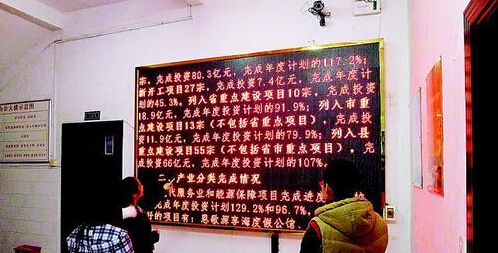 办公大楼示意图
宗，完成投资80.3亿元，完成年度计划的117.2%；
新开工项目27宗，完成投资7.4亿元，完成年度计
划的45.3%。列入省重点建设项目10宗，完成投资
18.9亿元，完成年度投资计划的91.9%；列入市重
点建设项目13宗（不包括省重点项目），完成投
资11.9亿元，完成年度投资计划的79.9%；列入县
重点建设项目55宗（不包括省市重点项目），完
成投资66亿元，完成年度投资计划的107%。
二、产业分类完成情况
代服务业和能源保障项目完成进度
成年度投资计划129.2%和96.7%，
好的项目有：恩歌源享海度假公馆